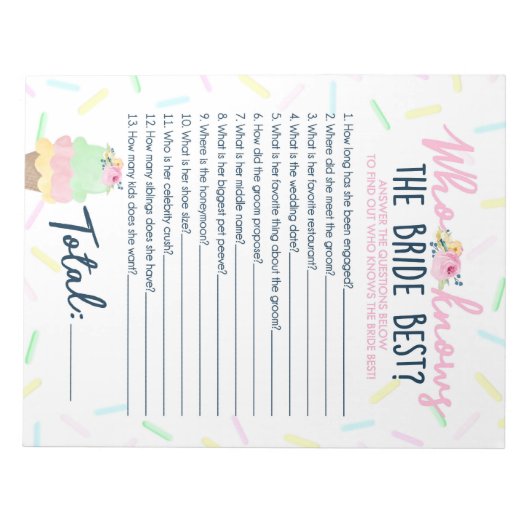 Who knows
THE BRIDE BEST?
ANSWER THE QUESTIONS BELOW
TO FIND OUT WHO KNOW'S THE BRIDE BEST!
1. How long has she been engaged?
2. Where did she meet the groom?
3. What is her favorite restaurant?
4. What is the wedding date?
5. What is her favorite thing about the groom?
6. How did the groom propose?
7. What is her middle name?
8. What is her biggest pet peeve?
9. Where is the honeymoon?
10. What is her shoe size?
11. Who is her celebrity crush?
12. How many siblings does she have?
13. How many kids does she want?
Total: